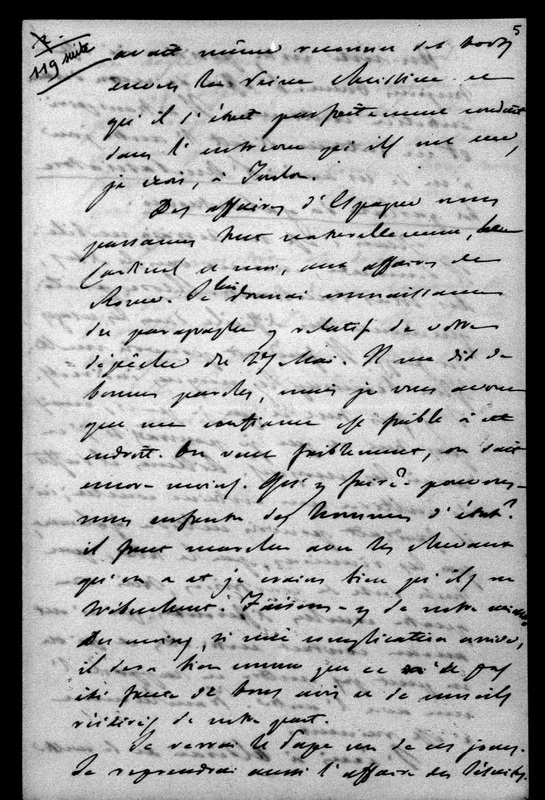 119 suite
5
avait même reconnu ses torts
envers la Reine Christine et
qu'il s'était parfaitement conduit
dans l'entrevue qu'ils ont eue,
je crois, à Toulon.
Des affaires d'Espagne nous
passames tout naturellement, le
Cardinal et moi, aux affaires de
Rome. Je lui donnai connaissance
du paragraphe y relatif de votre
dépêche du 27 Mai. Il me dit de
bonnes paroles, mais je vous avoue
que ma confiance est faible à cet
endroit. On veut faiblement, on sait
encore moins. Qu'y faire? pouvons-
nous enfanter des hommes d'état?
il faut marcher avec les chevaux
qu'on a et je crains bien qu'ils ne
trébuchent. Faisons-y de notre mieux
Du moins, si une complication arrive,
il sera bien connu que ce n'a pas
été faute de bons avis et de conseils
réitérés de notre part.
Je verrai le Pape un de ces jours.
Je reprendrai aussi l'affaire des Jésuites.